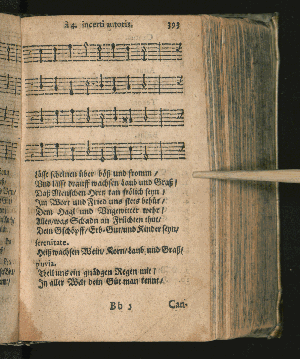 à 4. incerti autoris. 393
lässt scheinen über böß und fromm /
Und lässt drauff wachsen Laub und Graß /
Daß Menschen Hertz kan frölich seyn /
Im Wort und Fried uns stets behüt /
Dem Hagl und Ungewitter wehr /
Alles / was Schadn an Früchten thut /
Dein Gschöpff / Erb-Gut und Kinder seyn /
serenitate.
Heiß wachsen Wein / Korn / Laub und Graß /
pluvia.
Theil uns ein gnädgen Regen mit /
In aller Welt dein Güt man kennt /
Bb 3 Can-